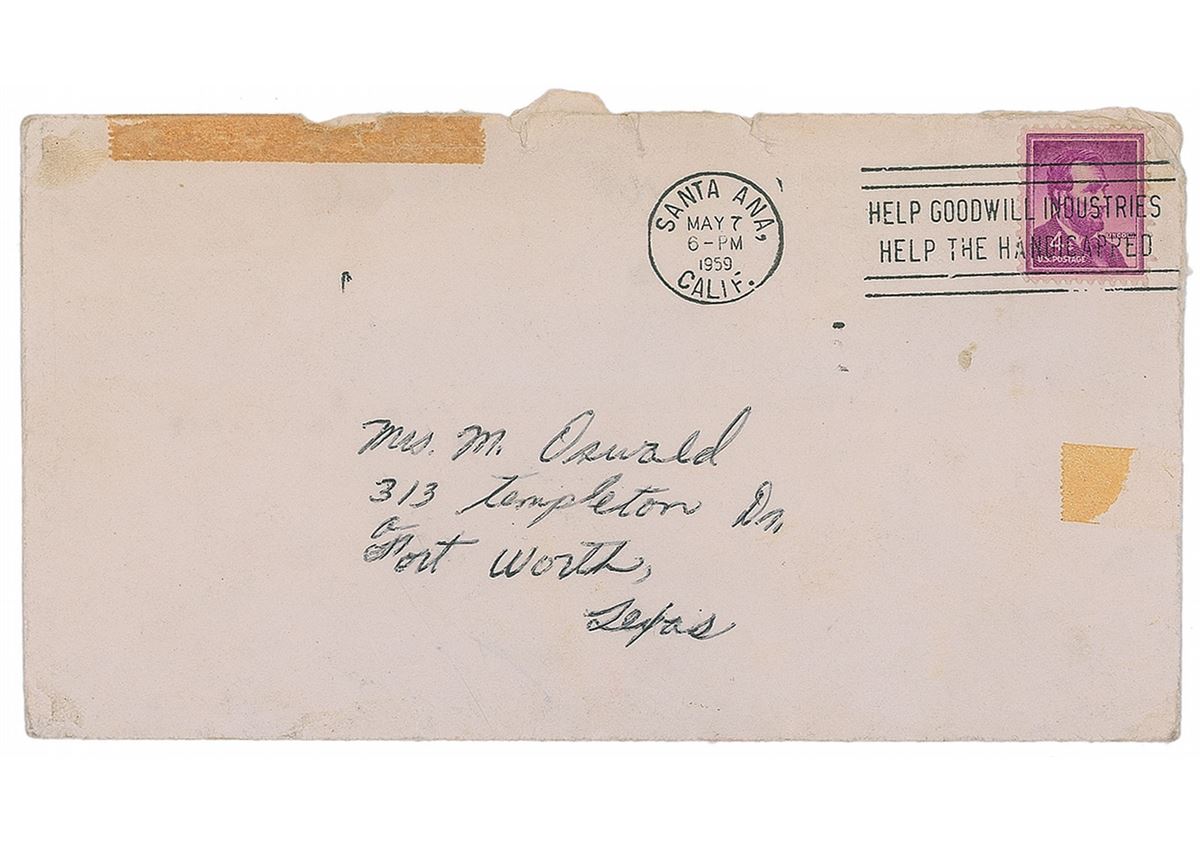 SANTA ANA,
MAY 7
6-PM
1959
CALIF.
HELP GOODWILL INDUSTRIES
HELP THE HANDICAPPED
LINCOLN
4¢
U.S. POSTAGE
Mrs. M. Oswald
313 Templeton Dr.
Fort Worth,
Texas